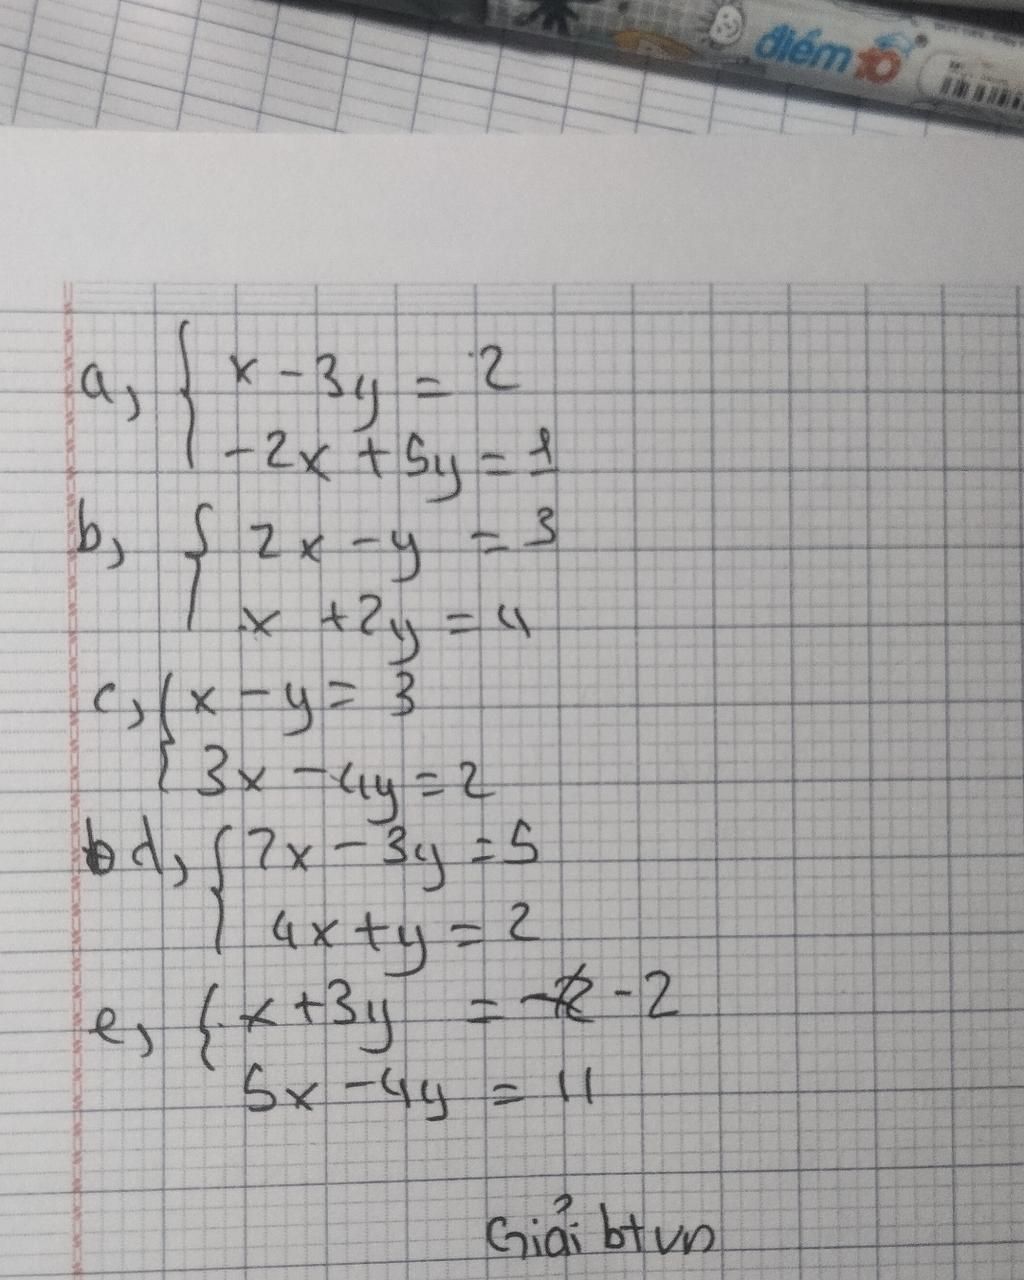 điểm 10
a, { x - 3y = 2
-2x + 5y = 1
b, { 2x - y = 3
x + 2y = 4
c, { x - y = 3
3x - 4y = 2
d, { 7x - 3y = 5
4x + y = 2
e, { x + 3y = -2
5x - 4y = 11
Giải btvn